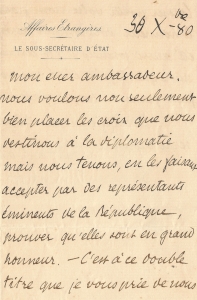 Affaires Etrangères
30 Xbre -80
LE SOUS-SECRÉTAIRE D'ÉTAT
mon cher ambassadeur,
nous voulons non seulement
bien placer les croix que nous
destinons à la diplomatie
mais nous tenons, en les faisant
accepter par des représentants
éminents de la République,
prouver qu'elles sont en grand
honneur. — C'est à ce double
titre que je vous prie de nous